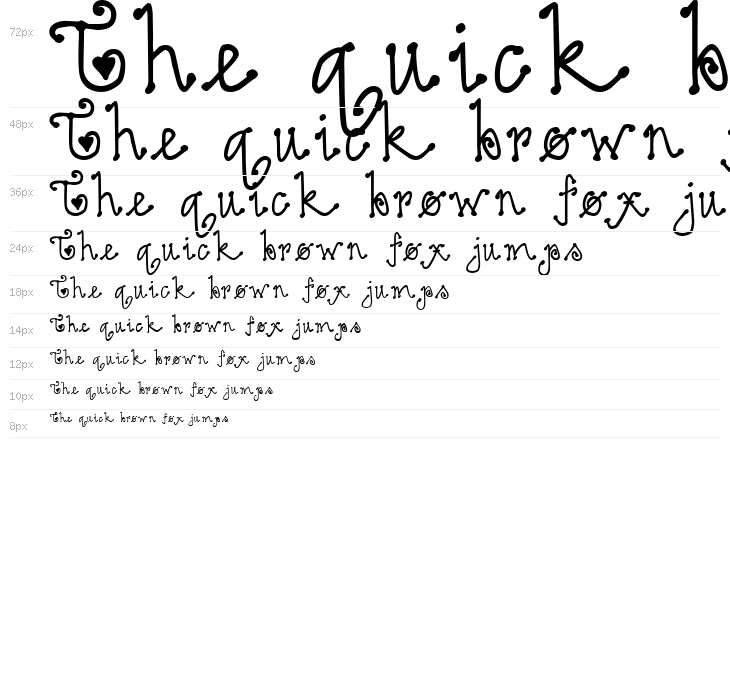 72px The quick b
48px The quick brown j
36px The quick brown fox ju
24px The quick brown fox jumps
18px The quick brown fox jumps
14px The quick brown fox jumps
12px The quick brown fox jumps
10px The quick brown fox jumps
8px The quick brown fox jumps